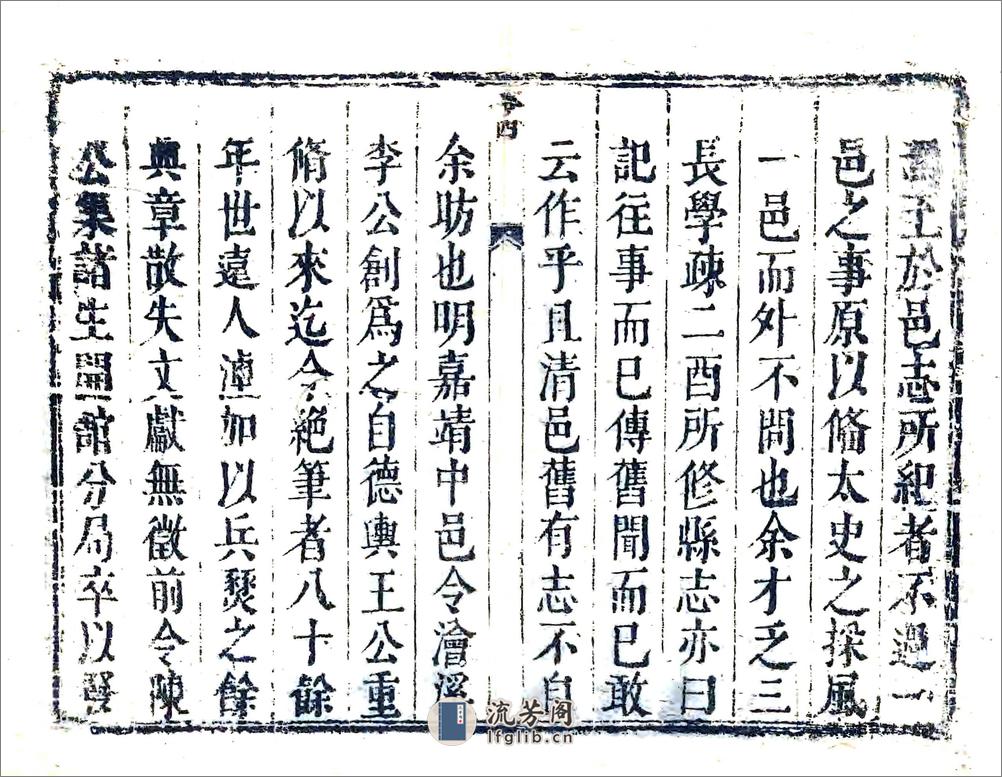 於邑志所紀者不過一
邑之事原以俻太史之採風
一邑而外不問也余才乏三
長學疎二酉所修縣志亦曰
記往事而已傳舊聞而已敢
云作乎且清邑舊有志不自
四
余昉也明嘉靖中邑令澮溪
李公創爲之自德輿王公重
脩以來迄今絕筆者八十餘
年世遠人湮加以兵燹之餘
典章散失文獻無徵前令陳
公集諸生開舘分局卒以
流芳阁
lfglib.cn